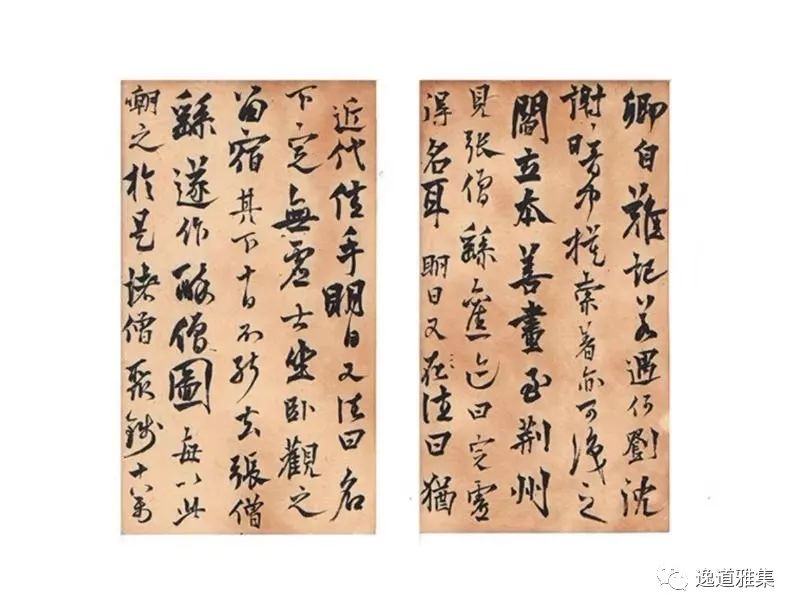 卿自難記若遇何劉沈
謝暗中摸索著亦可識之
閻立本善畫至荊州
見張僧繇舊迹曰定虛
得名耳明日又往曰猶
近代佳手明日又往曰名
下定無虛士坐臥觀之
留宿其下十日不能去張僧
繇遂作醉僧圖每以此
嘲之於是諸僧聚錢十萬
逸道雅集